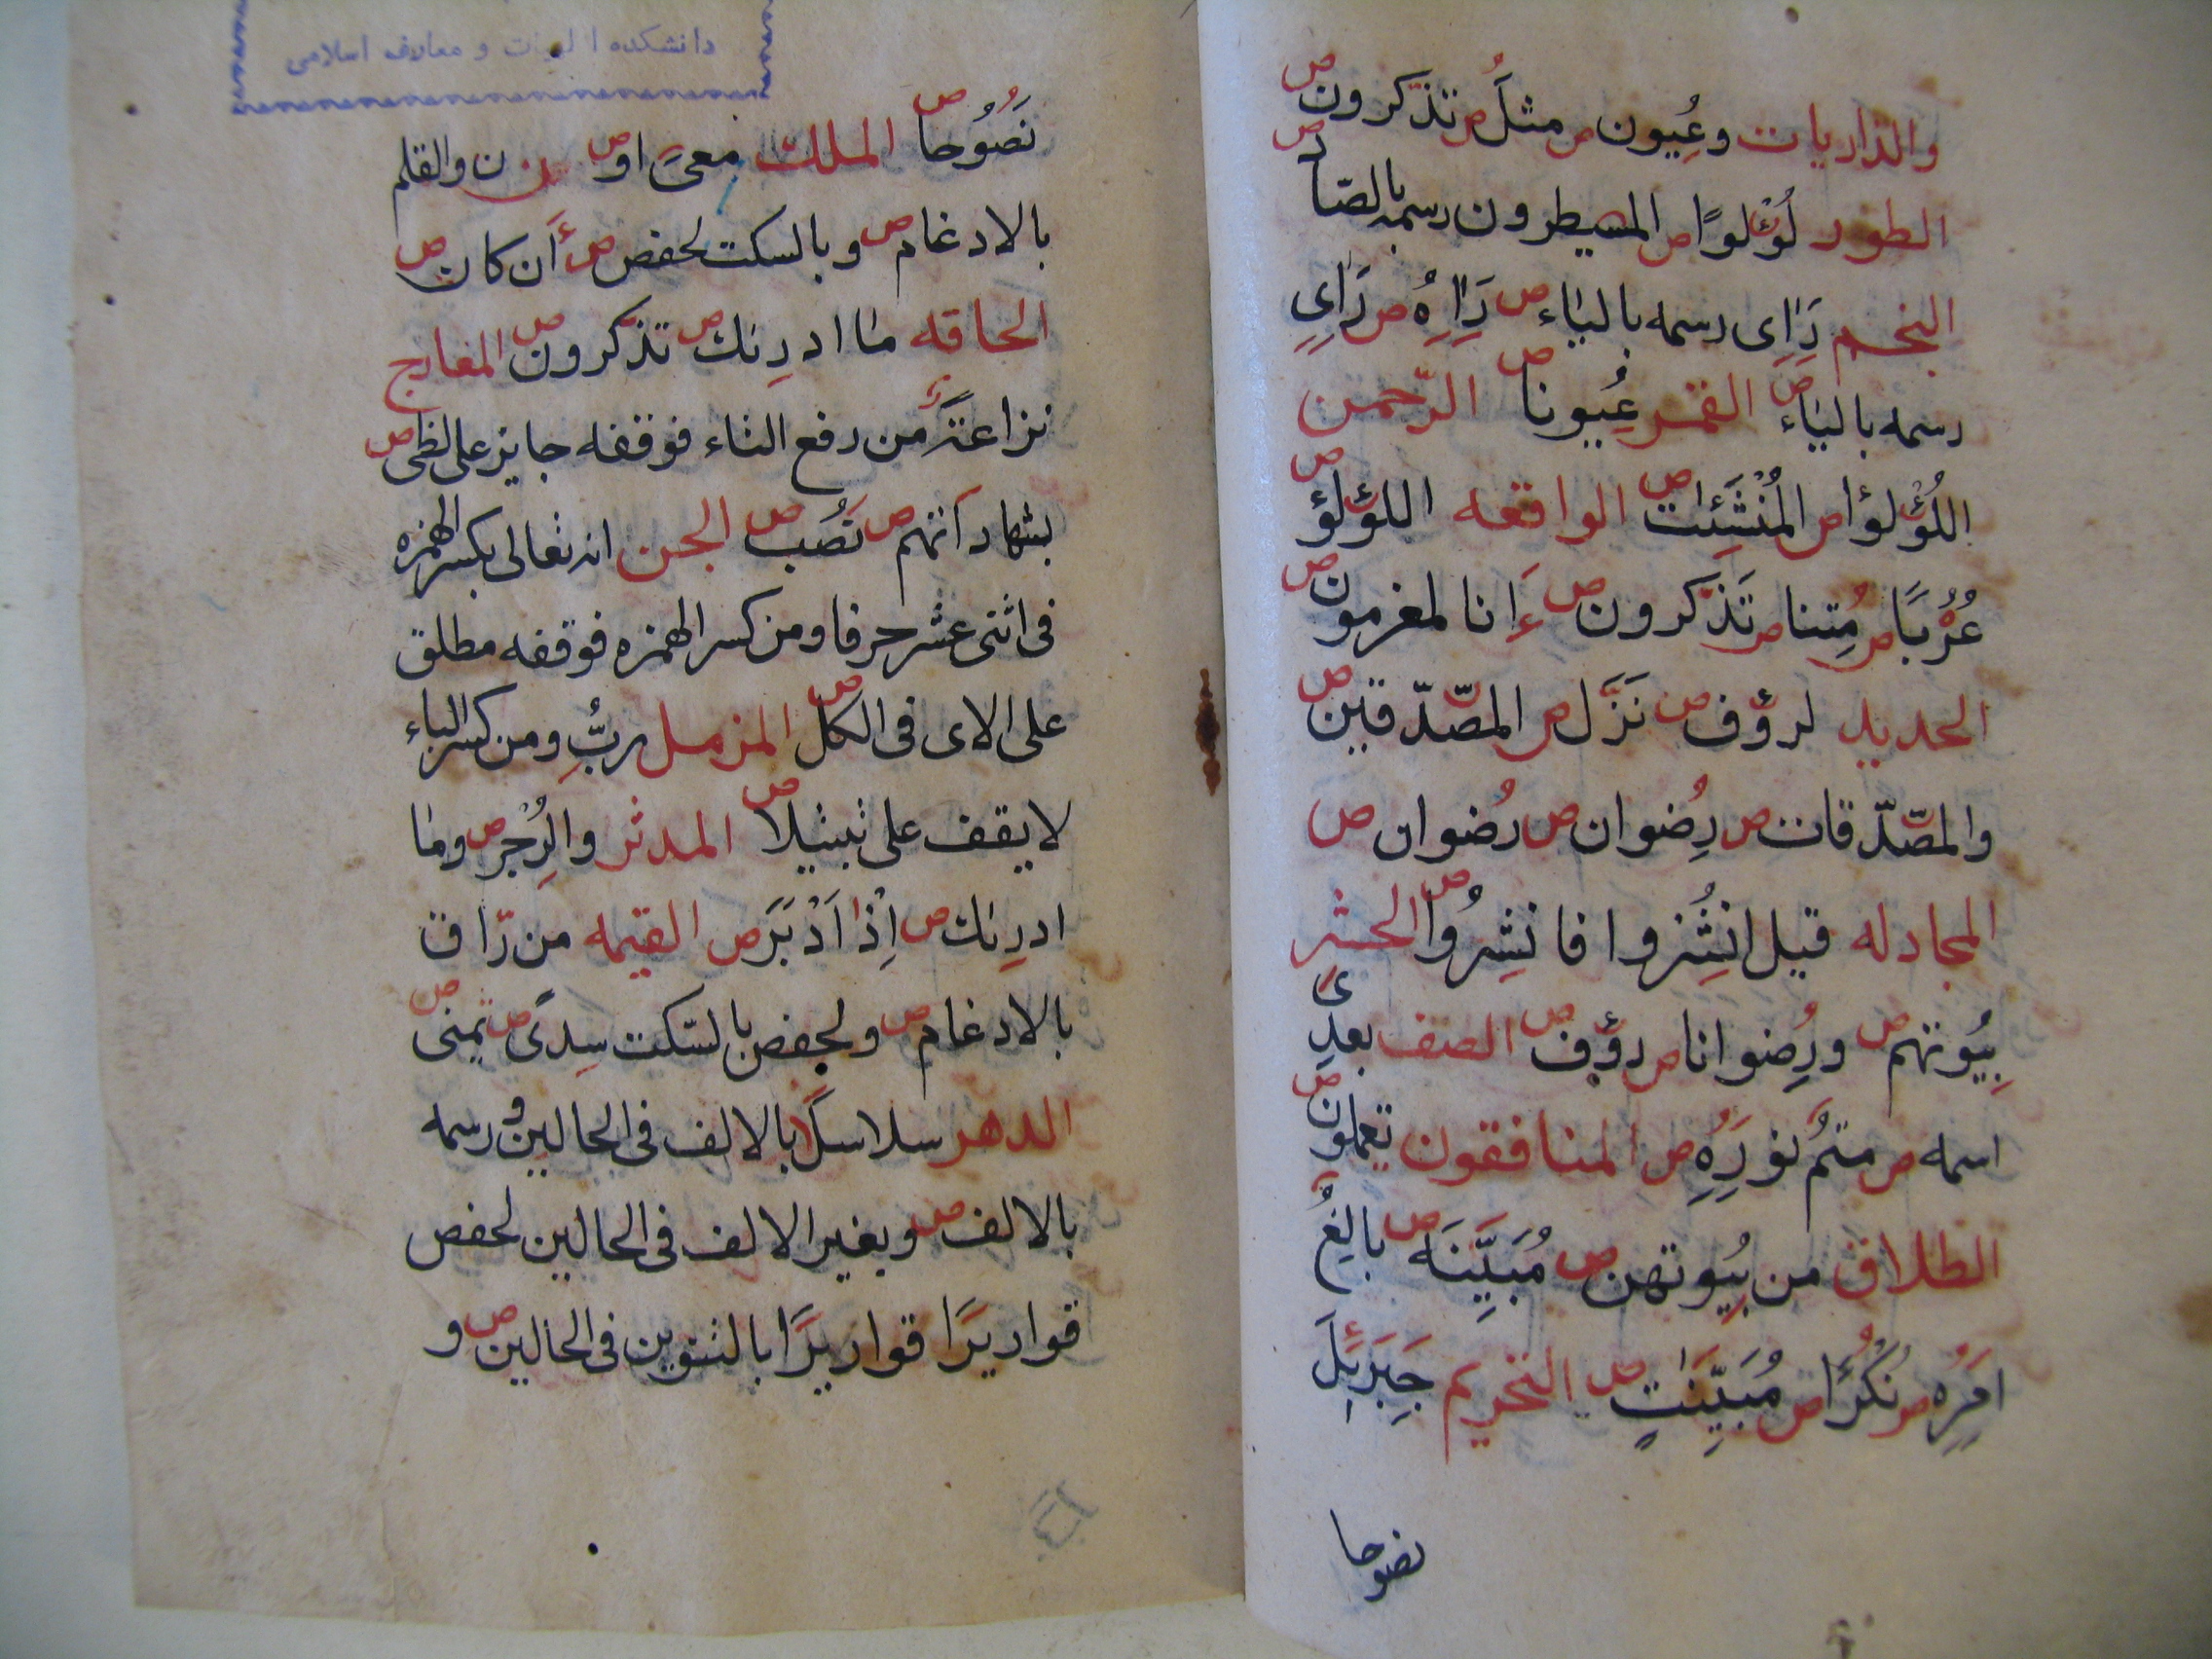 والذاريات وعُِيون ص مثلَُ ص تذّكرون ص
الطور لُؤْلوًا ص المصيطرون رسمه بالصّاد ص
النجم رَاِى رسمه بالياء ص رَاِهُ ص رَاِى
رسمه بالياء ص القمر عُِيونا ص الرّحمن
اللُؤْلؤا ص المُنْشَِئات ص الواقعه اللؤلؤ ص
عُرُْبًا ص مُِتنا ص تَذّكرون ص ءَاِنا لمغرمون ص
الحديد لرؤف ص نَزَّل ص المصّدّقين ص
والمصّدّقات ص رُِضوان ص رُضوان ص
المجادله قيل انشُِزوا فانشُِزُوا ص الحشر
بُِيُوتهم ص ورُِضوانا ص رؤف ص الصف بعدِى
اسمه ص متمُّ نورَهِ ص المنافقون تعملون ص
الطلاق من بُِيُوتهن ص مُبَيَِّنَه ص بالِغُ
امرَِه ص نُكُْرًا ص مُبَيَِّنٰتٍ ص التحريم جَِبَرَئِلَ
نصوحا
دانشكده الهيات و معارف اسلامى
نَُصُوحا ص الملك معىَ او ص ن ن والقلم
بالادغام ص وبالسكت لحفص ص ءَاَن كان ص
الحاقه ما ادرِىٰك ص تذّكرون ص المعارج
نزاعةًَ من رفع التاء فوقفه جايز على لظى ص
بشهاداتهم ص نَُصُب ص الجن انه تعالى بكسر الهمزه
فى اثنى عشر حرفا ومن كسر الهمزه فوقفه مطلق
على الاى فى الكل ص المزمل ربُِّ ومن كسر الباء
لا يقف على تبتيلا ص المدثر والرُِجز ص وما
ادرِىٰك ص اِذْا اَدْبَرَ ص القيمه من رّاق
بالادغام ص ولحفص بالسّكت سِدىً ص يمنى ص
الدهر سلاسلًا بالالف فى الحالين و رسمه
بالالف ص وبغير الالف فى الحالين لحفص
قواريرًا قواريرًا بالتنوين فى الحالين ص و